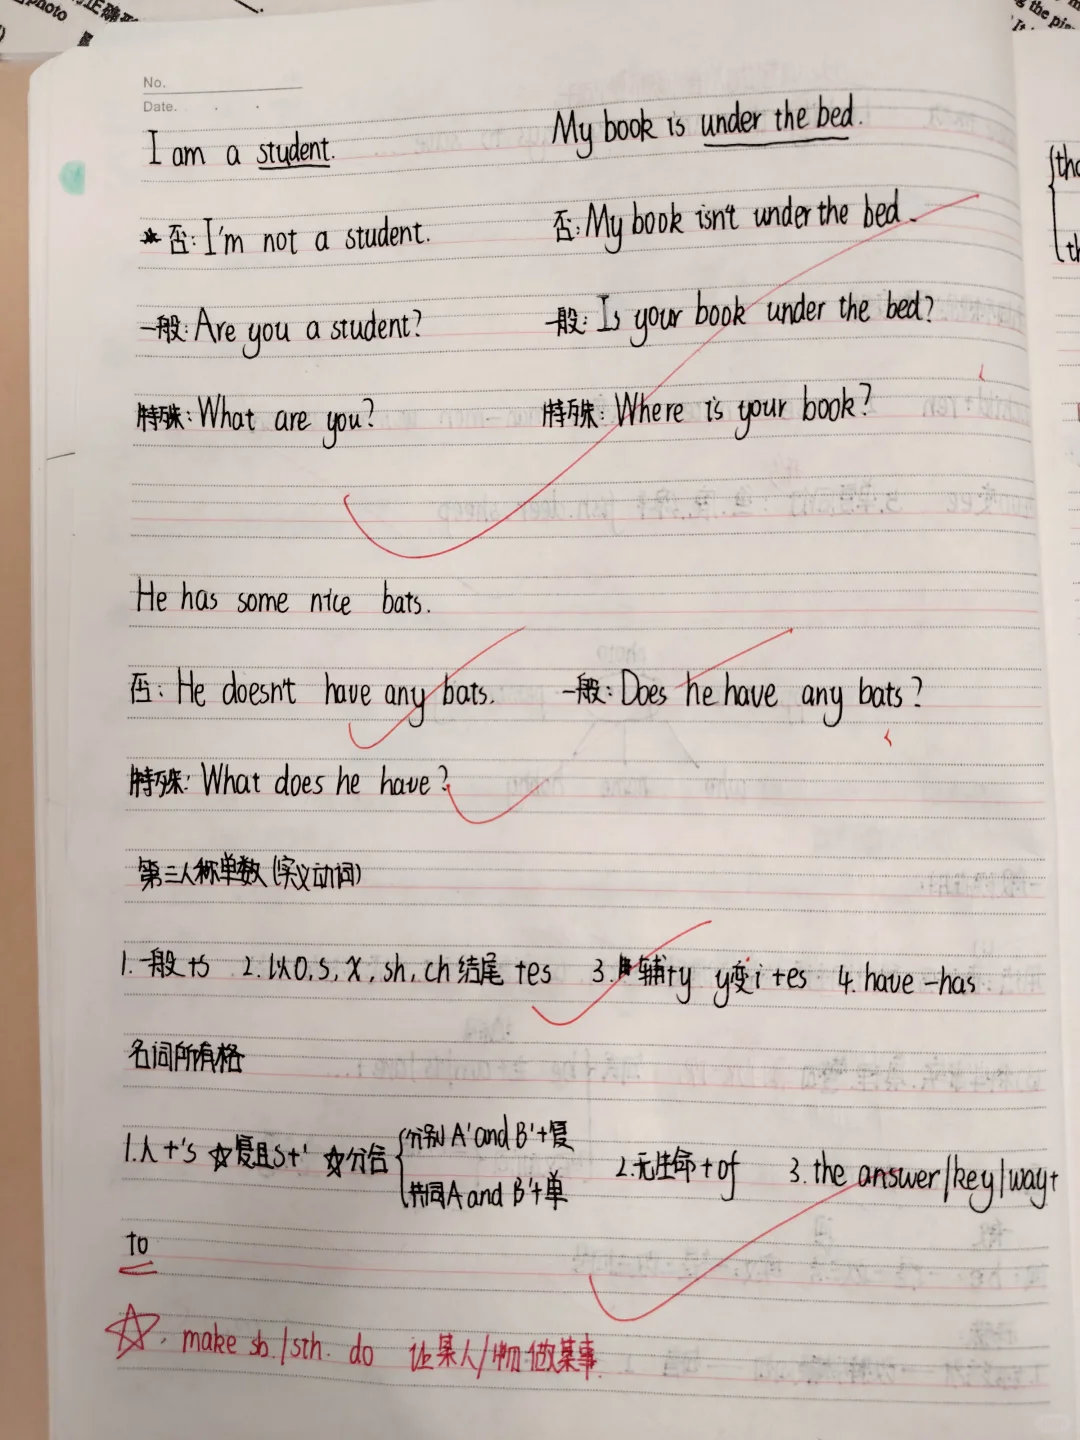 photo
No.
Date.
I am a student.
My book is under the bed.
★否: I'm not a student.
否: My book isn't under the bed.
一般: Are you a student?
一般: Is your book under the bed?
特殊: What are you?
特殊: Where is your book?
He has some nice bats.
否: He doesn't have any bats.
一般: Does he have any bats?
特殊: What does he have?
第三人称单数(实义动词)
1.一般+s 2.以o,s,x,sh,ch结尾+es 3.辅+y y变i+es 4.have-has
名词所有格
1.人+'s ☆复且s+' ☆分合
分别A' and B'+复
共同A and B'+单
2.无生命+of 3. the answer/key/way+
to
☆. make sb./sth. do 让某人/物 做某事